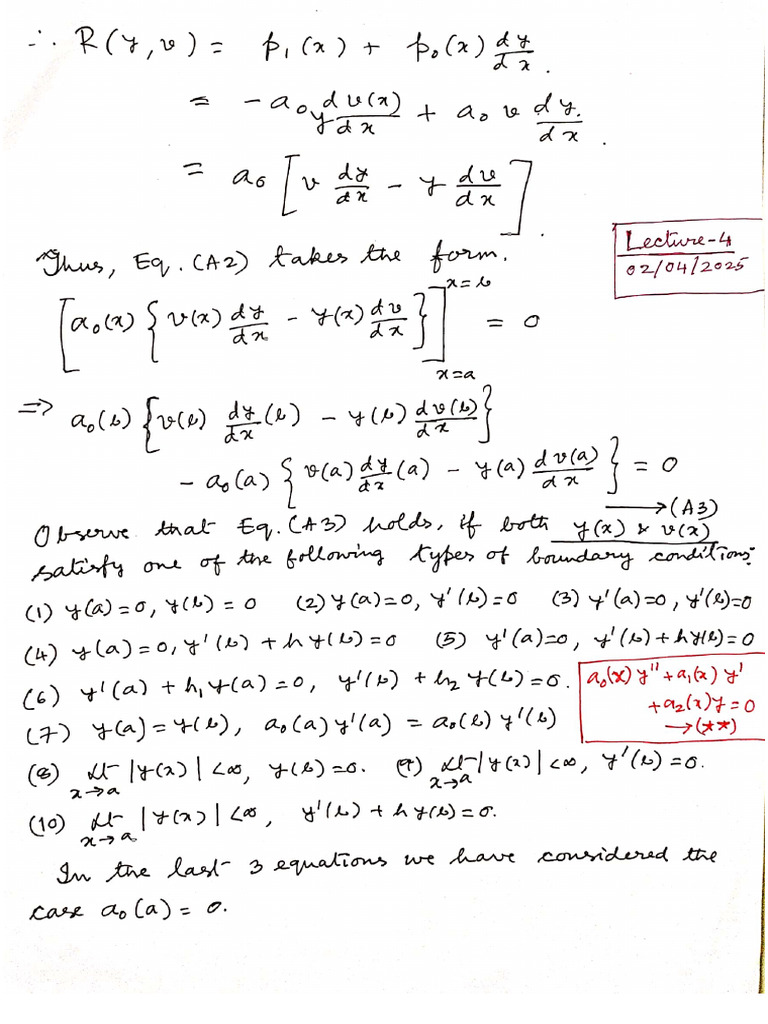 ∴ R(y, v) = p₁(x) + p₀(x) dy/dx.
= - a₀ y dv(x)/dx + a₀ v dy/dx.
= a₀ [v dy/dx - y dv/dx].
Lecture-4
02/04/2025
Thus, Eq. (A2) takes the form.
[a₀(x) {v(x) dy/dx - y(x) dv/dx}]_{x=a}^{x=b} = 0
⇒ a₀(b) {v(b) dy/dx (b) - y(b) dv(b)/dx}
- a₀(a) {v(a) dy/dx (a) - y(a) dv(a)/dx} = 0
⟶ (A3)
Observe that Eq. (A3) holds, if both y(x) & v(x)
satisfy one of the following types of boundary conditions:
(1) y(a) = 0, y(b) = 0 (2) y(a) = 0, y'(b) = 0 (3) y'(a) = 0, y'(b) = 0
(4) y(a) = 0, y'(b) + h y(b) = 0 (5) y'(a) = 0, y'(b) + h y(b) = 0
(6) y'(a) + h₁ y(a) = 0, y'(b) + h₂ y(b) = 0.
a₀(x) y'' + a₁(x) y'
+ a₂(x) y = 0
⟶ (**)
(7) y(a) = y(b), a₀(a) y'(a) = a₀(b) y'(b)
(8) Lt_{x→a} |y(x)| < ∞, y(b) = 0. (9) Lt_{x→a} |y(x)| < ∞, y'(b) = 0.
(10) Lt_{x→a} |y(x)| < ∞, y'(b) + h y(b) = 0.
In the last 3 equations we have considered the
case a₀(a) = 0.